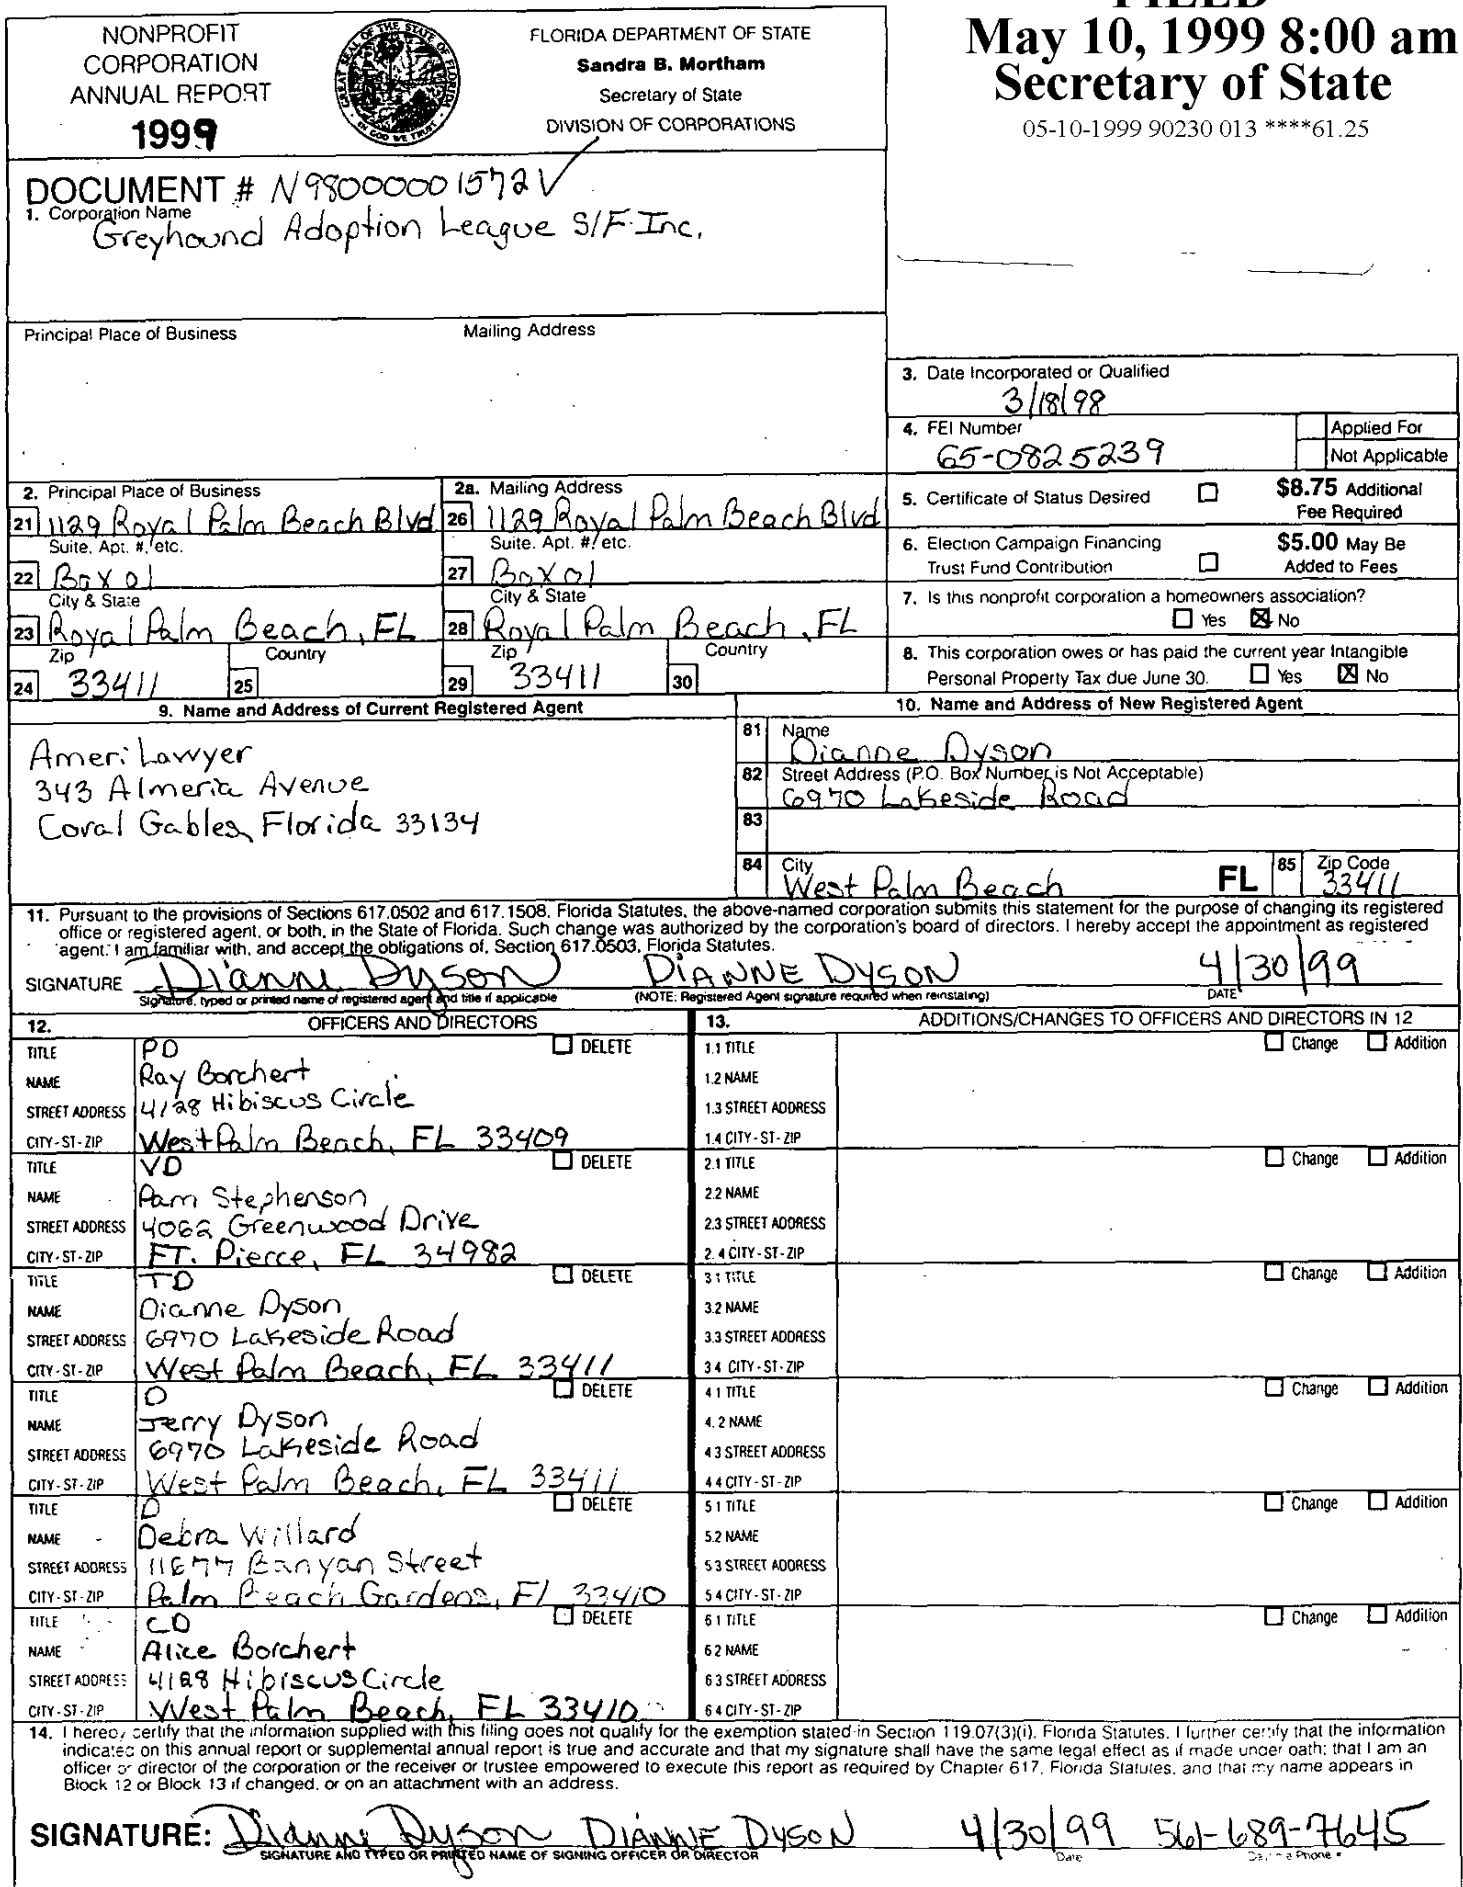 NONPROFIT
CORPORATION
ANNUAL REPORT
1999
FLORIDA DEPARTMENT OF STATE
Sandra B. Mortham
Secretary of State
DIVISION OF CORPORATIONS
FILED
May 10, 1999 8:00 am
Secretary of State
05-10-1999 90230 013 ****61.25
DOCUMENT # N98000001572
1. Corporation Name
Greyhound Adoption League S/F Inc.
Principal Place of Business
Mailing Address
3. Date Incorporated or Qualified
3/18/98
4. FEI Number
65-0825239
Applied For
Not Applicable
2. Principal Place of Business
21 1129 Royal Palm Beach Blvd
Suite, Apt. #, etc.
22 Box 01
City & State
23 Royal Palm Beach, FL
Zip Country
24 33411 25
2a. Mailing Address
26 1129 Royal Palm Beach Blvd
Suite, Apt. #, etc.
27 Box 01
City & State
28 Royal Palm Beach, FL
Zip Country
29 33411 30
5. Certificate of Status Desired $8.75 Additional
Fee Required
6. Election Campaign Financing $5.00 May Be
Trust Fund Contribution Added to Fees
7. Is this nonprofit corporation a homeowners association?
Yes No
8. This corporation owes or has paid the current year Intangible
Personal Property Tax due June 30. Yes No
9. Name and Address of Current Registered Agent
AmeriLawyer
343 Almeria Avenue
Coral Gables, Florida 33134
10. Name and Address of New Registered Agent
81 Name
Dianne Dyson
82 Street Address (P.O. Box Number is Not Acceptable)
6970 Lakeside Road
83
84 City FL 85 Zip Code
West Palm Beach 33411
11. Pursuant to the provisions of Sections 617.0502 and 617.1508, Florida Statutes, the above-named corporation submits this statement for the purpose of changing its registered
office or registered agent, or both, in the State of Florida. Such change was authorized by the corporation's board of directors. I hereby accept the appointment as registered
agent. I am familiar with, and accept the obligations of, Section 617.0503, Florida Statutes.
SIGNATURE Dianne Dyson DIANNE DYSON 4/30/99
Signature, typed or printed name of registered agent and title if applicable (NOTE: Registered Agent signature required when reinstating) DATE
12. OFFICERS AND DIRECTORS
TITLE PD DELETE
NAME Ray Borchert
STREET ADDRESS 4128 Hibiscus Circle
CITY-ST-ZIP West Palm Beach, FL 33409
TITLE VD DELETE
NAME Pam Stephenson
STREET ADDRESS 4062 Greenwood Drive
CITY-ST-ZIP FT. Pierce, FL 34982
TITLE TD DELETE
NAME Dianne Dyson
STREET ADDRESS 6970 Lakeside Road
CITY-ST-ZIP West Palm Beach, FL 33411
TITLE D DELETE
NAME Jerry Dyson
STREET ADDRESS 6970 Lakeside Road
CITY-ST-ZIP West Palm Beach, FL 33411
TITLE D DELETE
NAME Debra Willard
STREET ADDRESS Banyan Street
CITY-ST-ZIP Palm Beach Gardens, Fl 33410
TITLE CD DELETE
NAME Alice Borchert
STREET ADDRESS 4128 Hibiscus Circle
CITY-ST-ZIP West Palm Beach, FL 33410
13. ADDITIONS/CHANGES TO OFFICERS AND DIRECTORS IN 12
1.1 TITLE Change Addition
1.2 NAME
1.3 STREET ADDRESS
1.4 CITY-ST-ZIP
2.1 TITLE Change Addition
2.2 NAME
2.3 STREET ADDRESS
2.4 CITY-ST-ZIP
3.1 TITLE Change Addition
3.2 NAME
3.3 STREET ADDRESS
3.4 CITY-ST-ZIP
4.1 TITLE Change Addition
4.2 NAME
4.3 STREET ADDRESS
4.4 CITY-ST-ZIP
5.1 TITLE Change Addition
5.2 NAME
5.3 STREET ADDRESS
5.4 CITY-ST-ZIP
6.1 TITLE Change Addition
6.2 NAME
6.3 STREET ADDRESS
6.4 CITY-ST-ZIP
14. I hereby certify that the information supplied with this filing does not qualify for the exemption stated in Section 119.07(3)(i), Florida Statutes. I further certify that the information
indicated on this annual report or supplemental annual report is true and accurate and that my signature shall have the same legal effect as if made under oath; that I am an
officer or director of the corporation or the receiver or trustee empowered to execute this report as required by Chapter 617, Florida Statutes, and that my name appears in
Block 12 or Block 13 if changed, or on an attachment with an address.
SIGNATURE: Dianne Dyson DIANNE DYSON 4/30/99 561-689-7645
SIGNATURE AND TYPED OR PRINTED NAME OF SIGNING OFFICER OR DIRECTOR Date Daytime Phone #